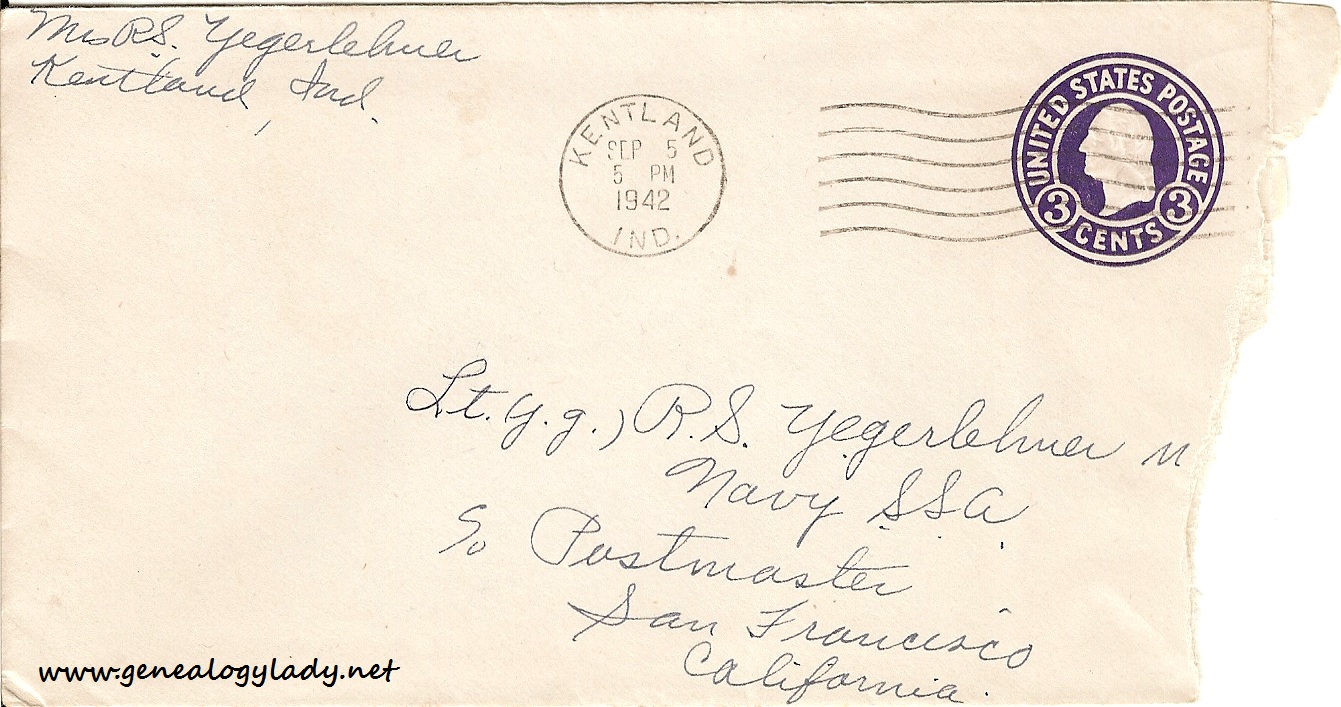 Mrs R.S. Yegerlehner
Kentland, Ind.
KENTLAND
SEP 5
5 PM
1942
IND.
UNITED STATES POSTAGE
3 CENTS 3
Lt. (j.g.) R.S. Yegerlehner
Navy SSA
c/o Postmaster
San Francisco
California.
www.genealogylady.net